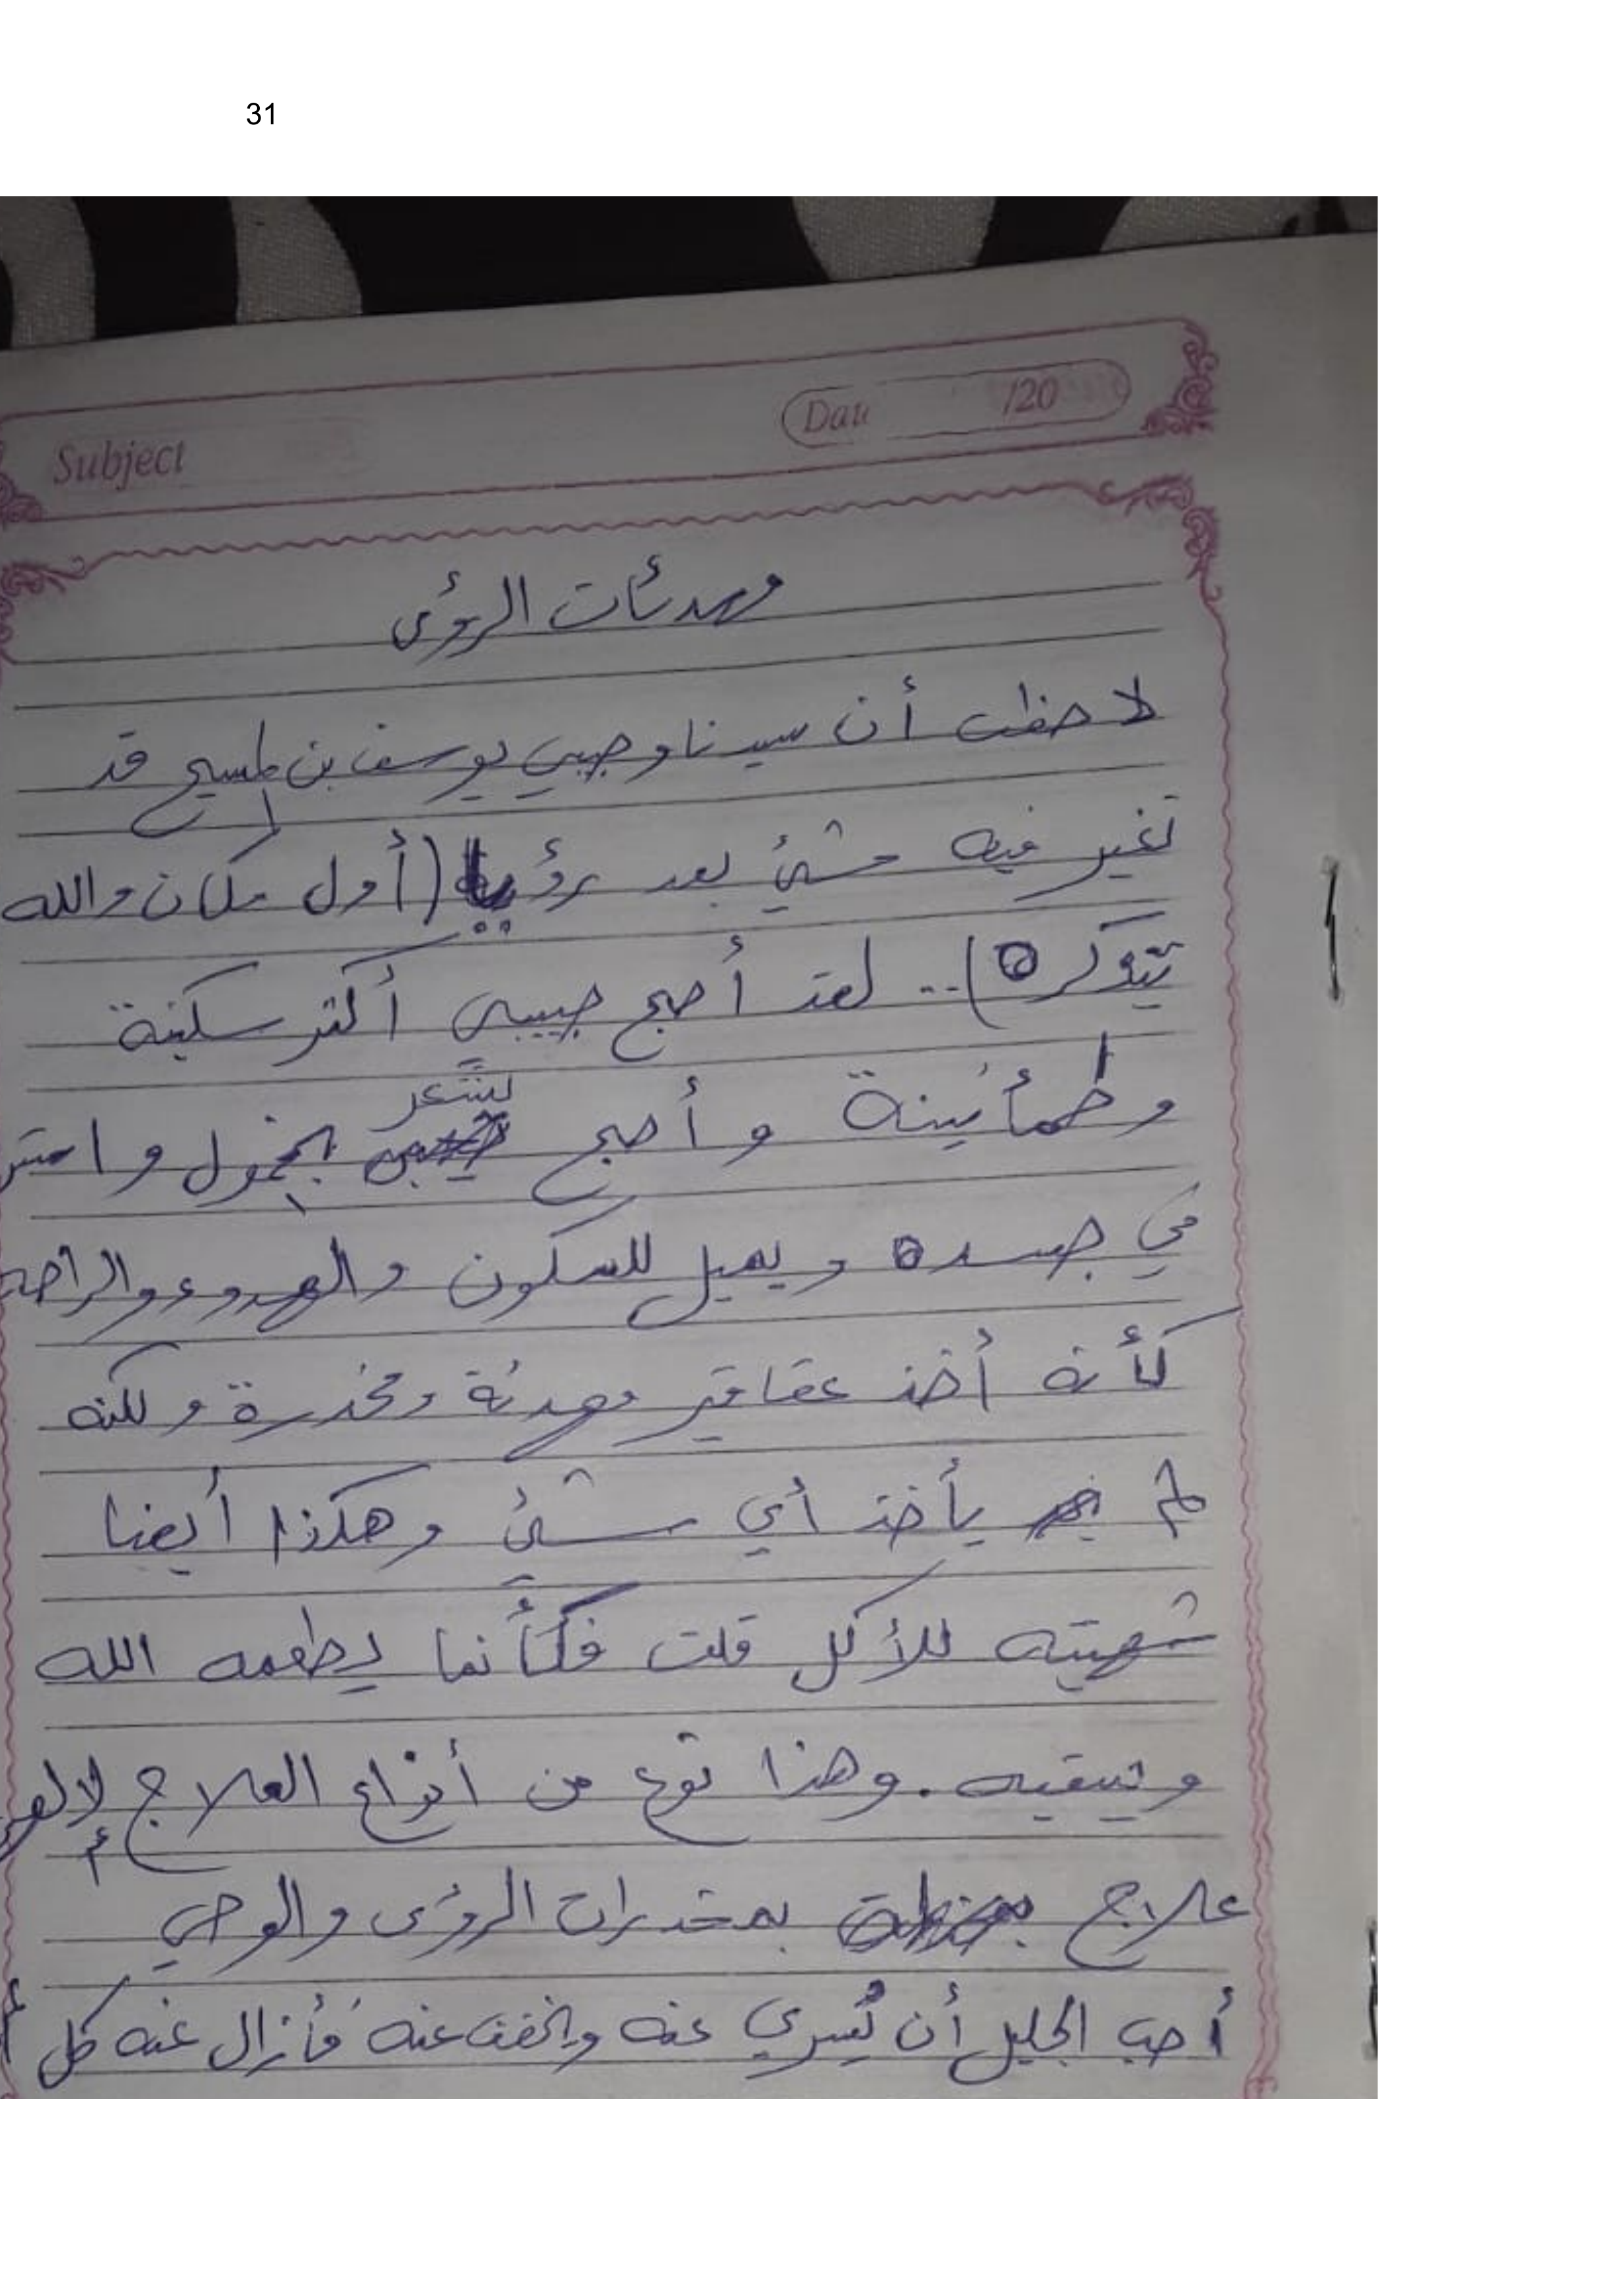 31
Subject
Date /20
مهدئات الرؤى
لاحظت أن سيدنا وحبيبي يوسف بن المسيح قد
تغير فيه شئ بعد رؤيا (أول مكان والله
تتذكره).. لقد أصبح حبيبي أكثر سكينة
وطمأنينة و أصبح يشعر بخمول و استر
في جسده ويميل للسكون والهدوء والراحة
كأنه أخذ عقاقير مهدئة ومخدرة ولكنه
لم يأخذ أي شئ وهكذا أيضا
شهيته للأكل قلت فكأنما يطعمه الله
ويسقيه. وهذا نوع من أنواع العلاج
علاج بمخدرات الرؤى والوحي
أحب الجليل أن يُسري عنه ويخفف عنه فأزال عنه كل